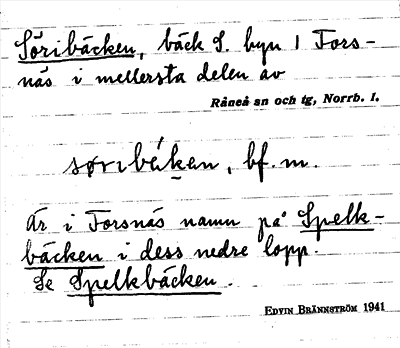 Söribäcken, bäck S. byn I Fors-
näs i mellersta delen av
Råneå sn och tg, Norrb. l.
sørɪbák̲an, bf. m.
Är i Forsnäs namn på Spelk-
bäcken i dess nedre lopp.
Se Spelkbäcken.
EDVIN BRÄNNSTRÖM 1941